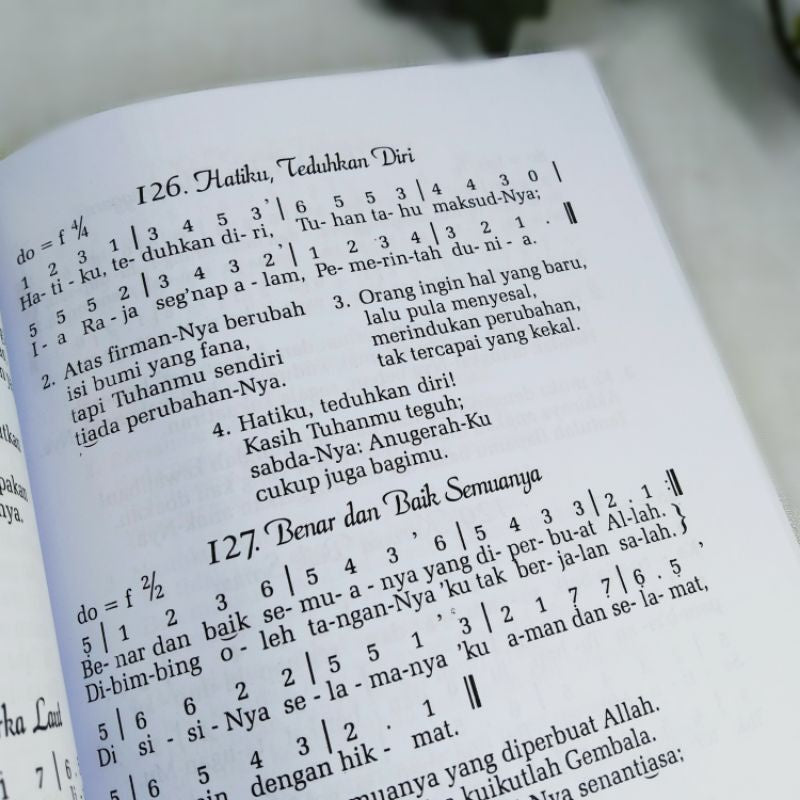 126. Hatiku, Teduhkan Diri
do = f 4/4
1 2 3 1 | 3 4 5 3 ' | 6 5 5 3 | 4 4 3 0 |
Ha- ti - ku, te- duhkan di- ri, Tu- han ta- hu maksud-Nya;
5 5 5 2 | 3 4 3 2 ' | 1 2 3 4 | 3 2 1 .
I - a Ra - ja seg'nap a - lam, Pe- me-rin-tah du- ni - a.
2. Atas firman-Nya berubah
isi bumi yang fana,
tapi Tuhanmu sendiri
tiada perubahan-Nya.
3. Orang ingin hal yang baru,
lalu pula menyesal,
merindukan perubahan,
tak tercapai yang kekal.
4. Hatiku, teduhkan diri!
Kasih Tuhanmu teguh;
sabda-Nya: Anugerah-Ku
cukup juga bagimu.
127. Benar dan Baik Semuanya
do = f 2/2
5 | 1 2 3 6 | 5 4 3 ' 6 | 5 4 3 3 | 2 . 1 :||
Be- nar dan baik se- mu- a - nya yang di- per- bu-at Al-lah. }
Di-bim-bing o - leh ta-ngan-Nya 'ku tak ber- ja-lan sa-lah. }
5 | 6 6 2 2 | 5 5 1 ' 3 | 2 1 7 7 | 6 . 5 ,
Di si - si - Nya se - la - ma-nya 'ku a-man dan se- la- mat,
5 | 6 5 4 3 | 2 . 1 ||
dengan hik - mat.
yang diperbuat Allah.
kuikutlah Gembala.
senantiasa;
7 | 6